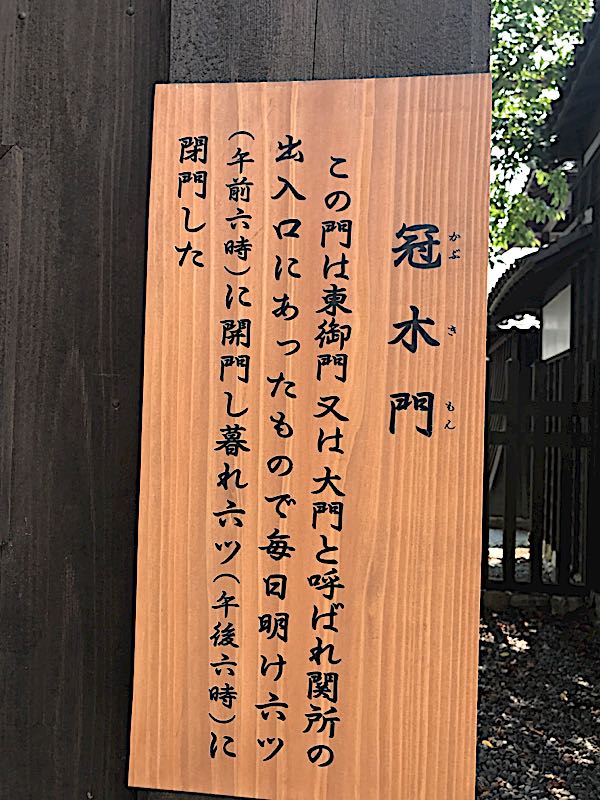 冠木門
かぶきもん
この門は東御門又は大門と呼ばれ関所の
出入口にあったもので毎日明け六ツ
(午前六時)に開門し暮れ六ツ(午後六時)に
閉門した